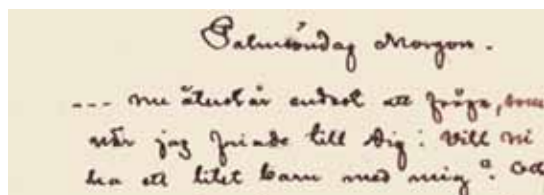 Palmsöndag Morgon.
--- nu återstår endast att fråga, som
när jag friade till Dig: Vill Ni
ha ett litet barn med mig? Och